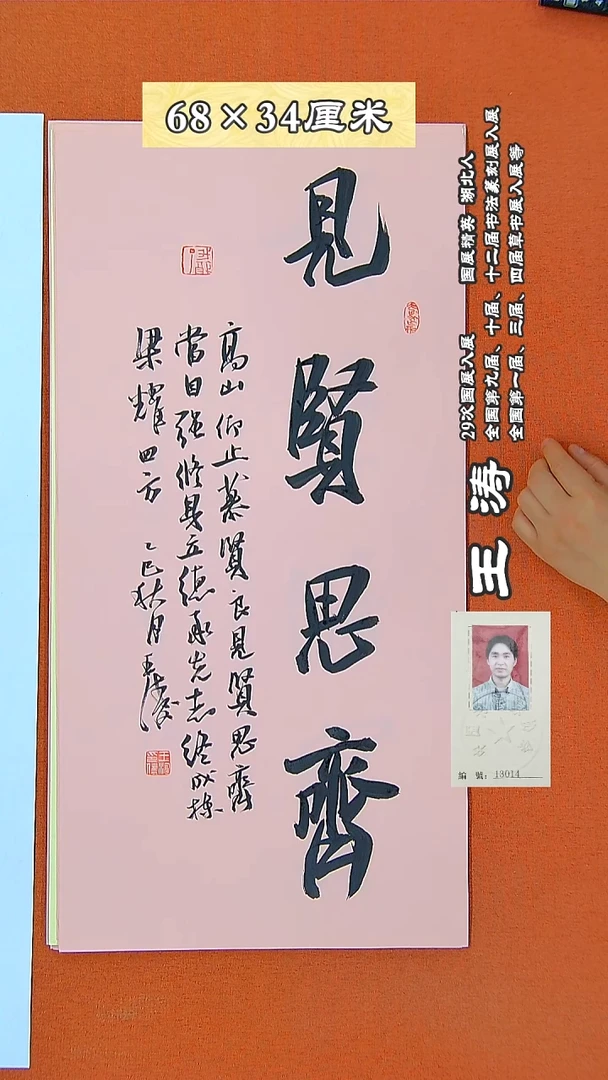 68×34厘米
見賢思齊
高山仰止慕賢良見賢思齊
當自强修身立德承先志終成棟
梁耀四方 乙巳秋月王濤
29次国展入展 国展精英 湖北人
全国第九届、十届、十二届书法篆刻展入展
全国第一届、三届、四届草书展入展等
王涛
編 號:13014